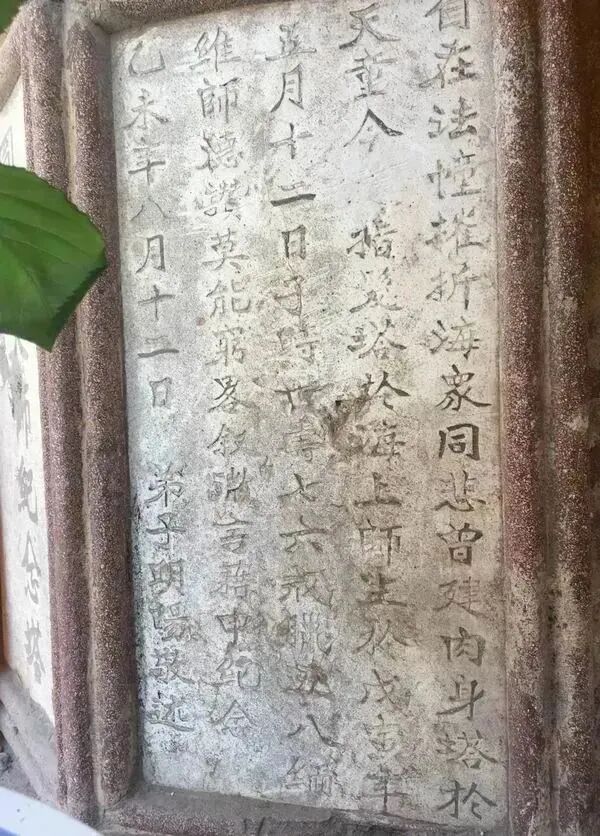 自在法幢摧折海衆同悲曾建肉身塔於
天童今 揩髮塔於海上師生於戊寅年
五月十二日子時世壽七六戒臘五八緬
維師德讚莫能窮畧叙蕪言藉申紀念
乙未年八月十二日 弟子明暘敬述
師紀念塔